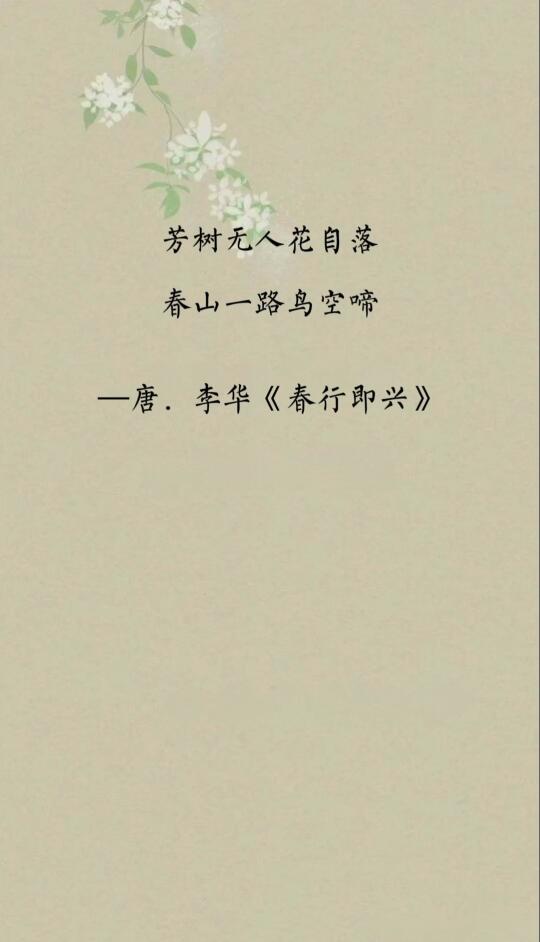 芳树无人花自落
春山一路鸟空啼
—唐．李华《春行即兴》